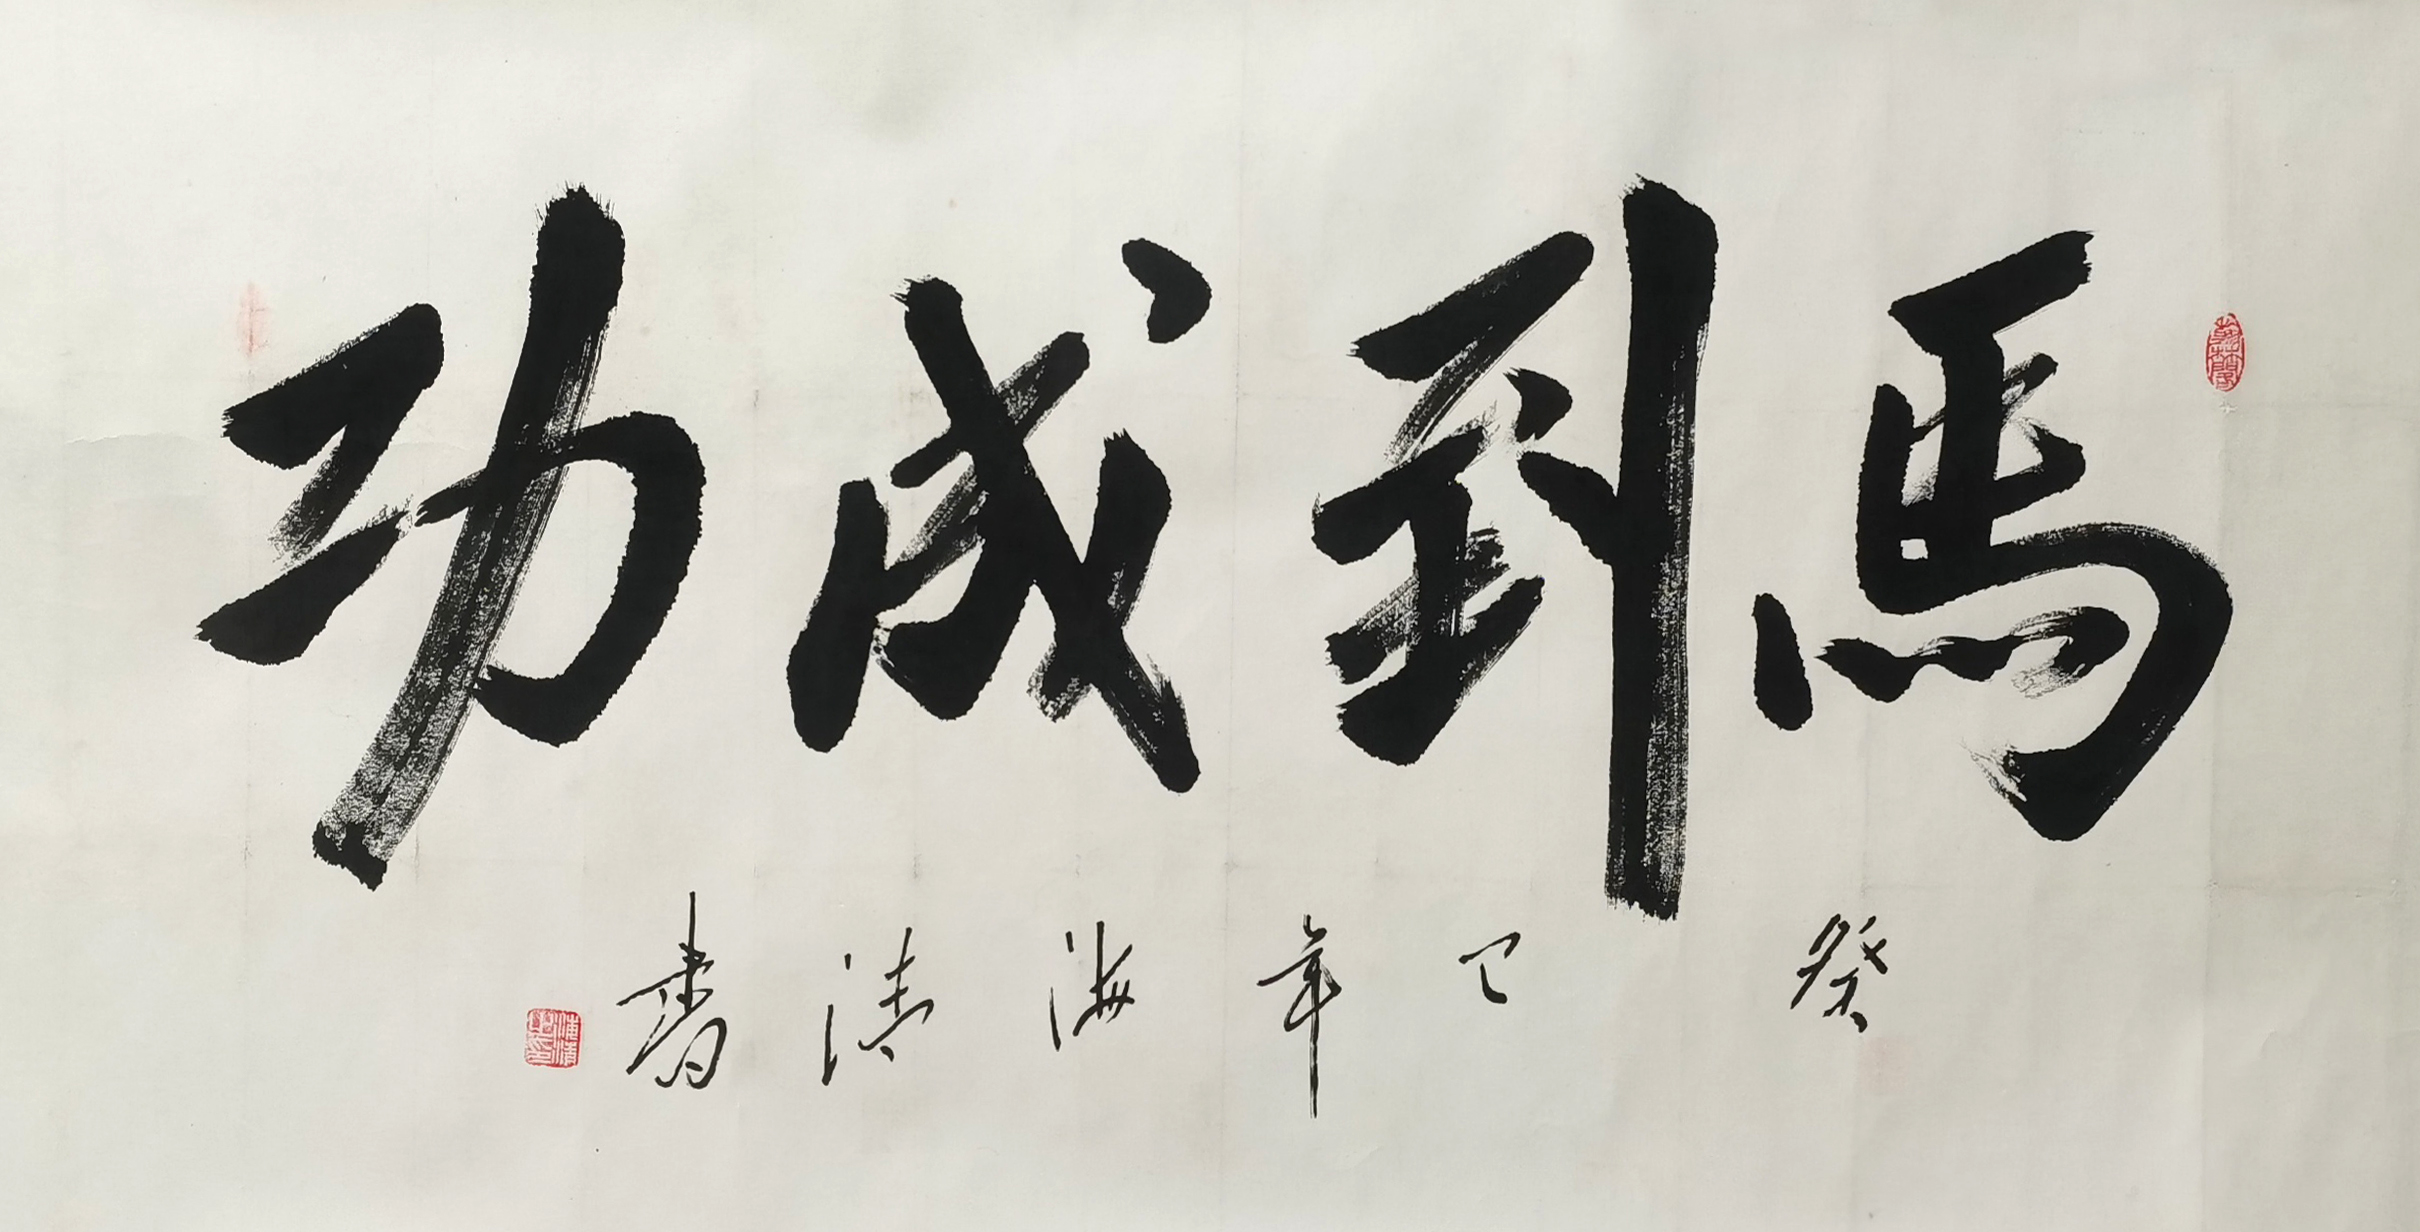 馬到成功
癸巳年海清書